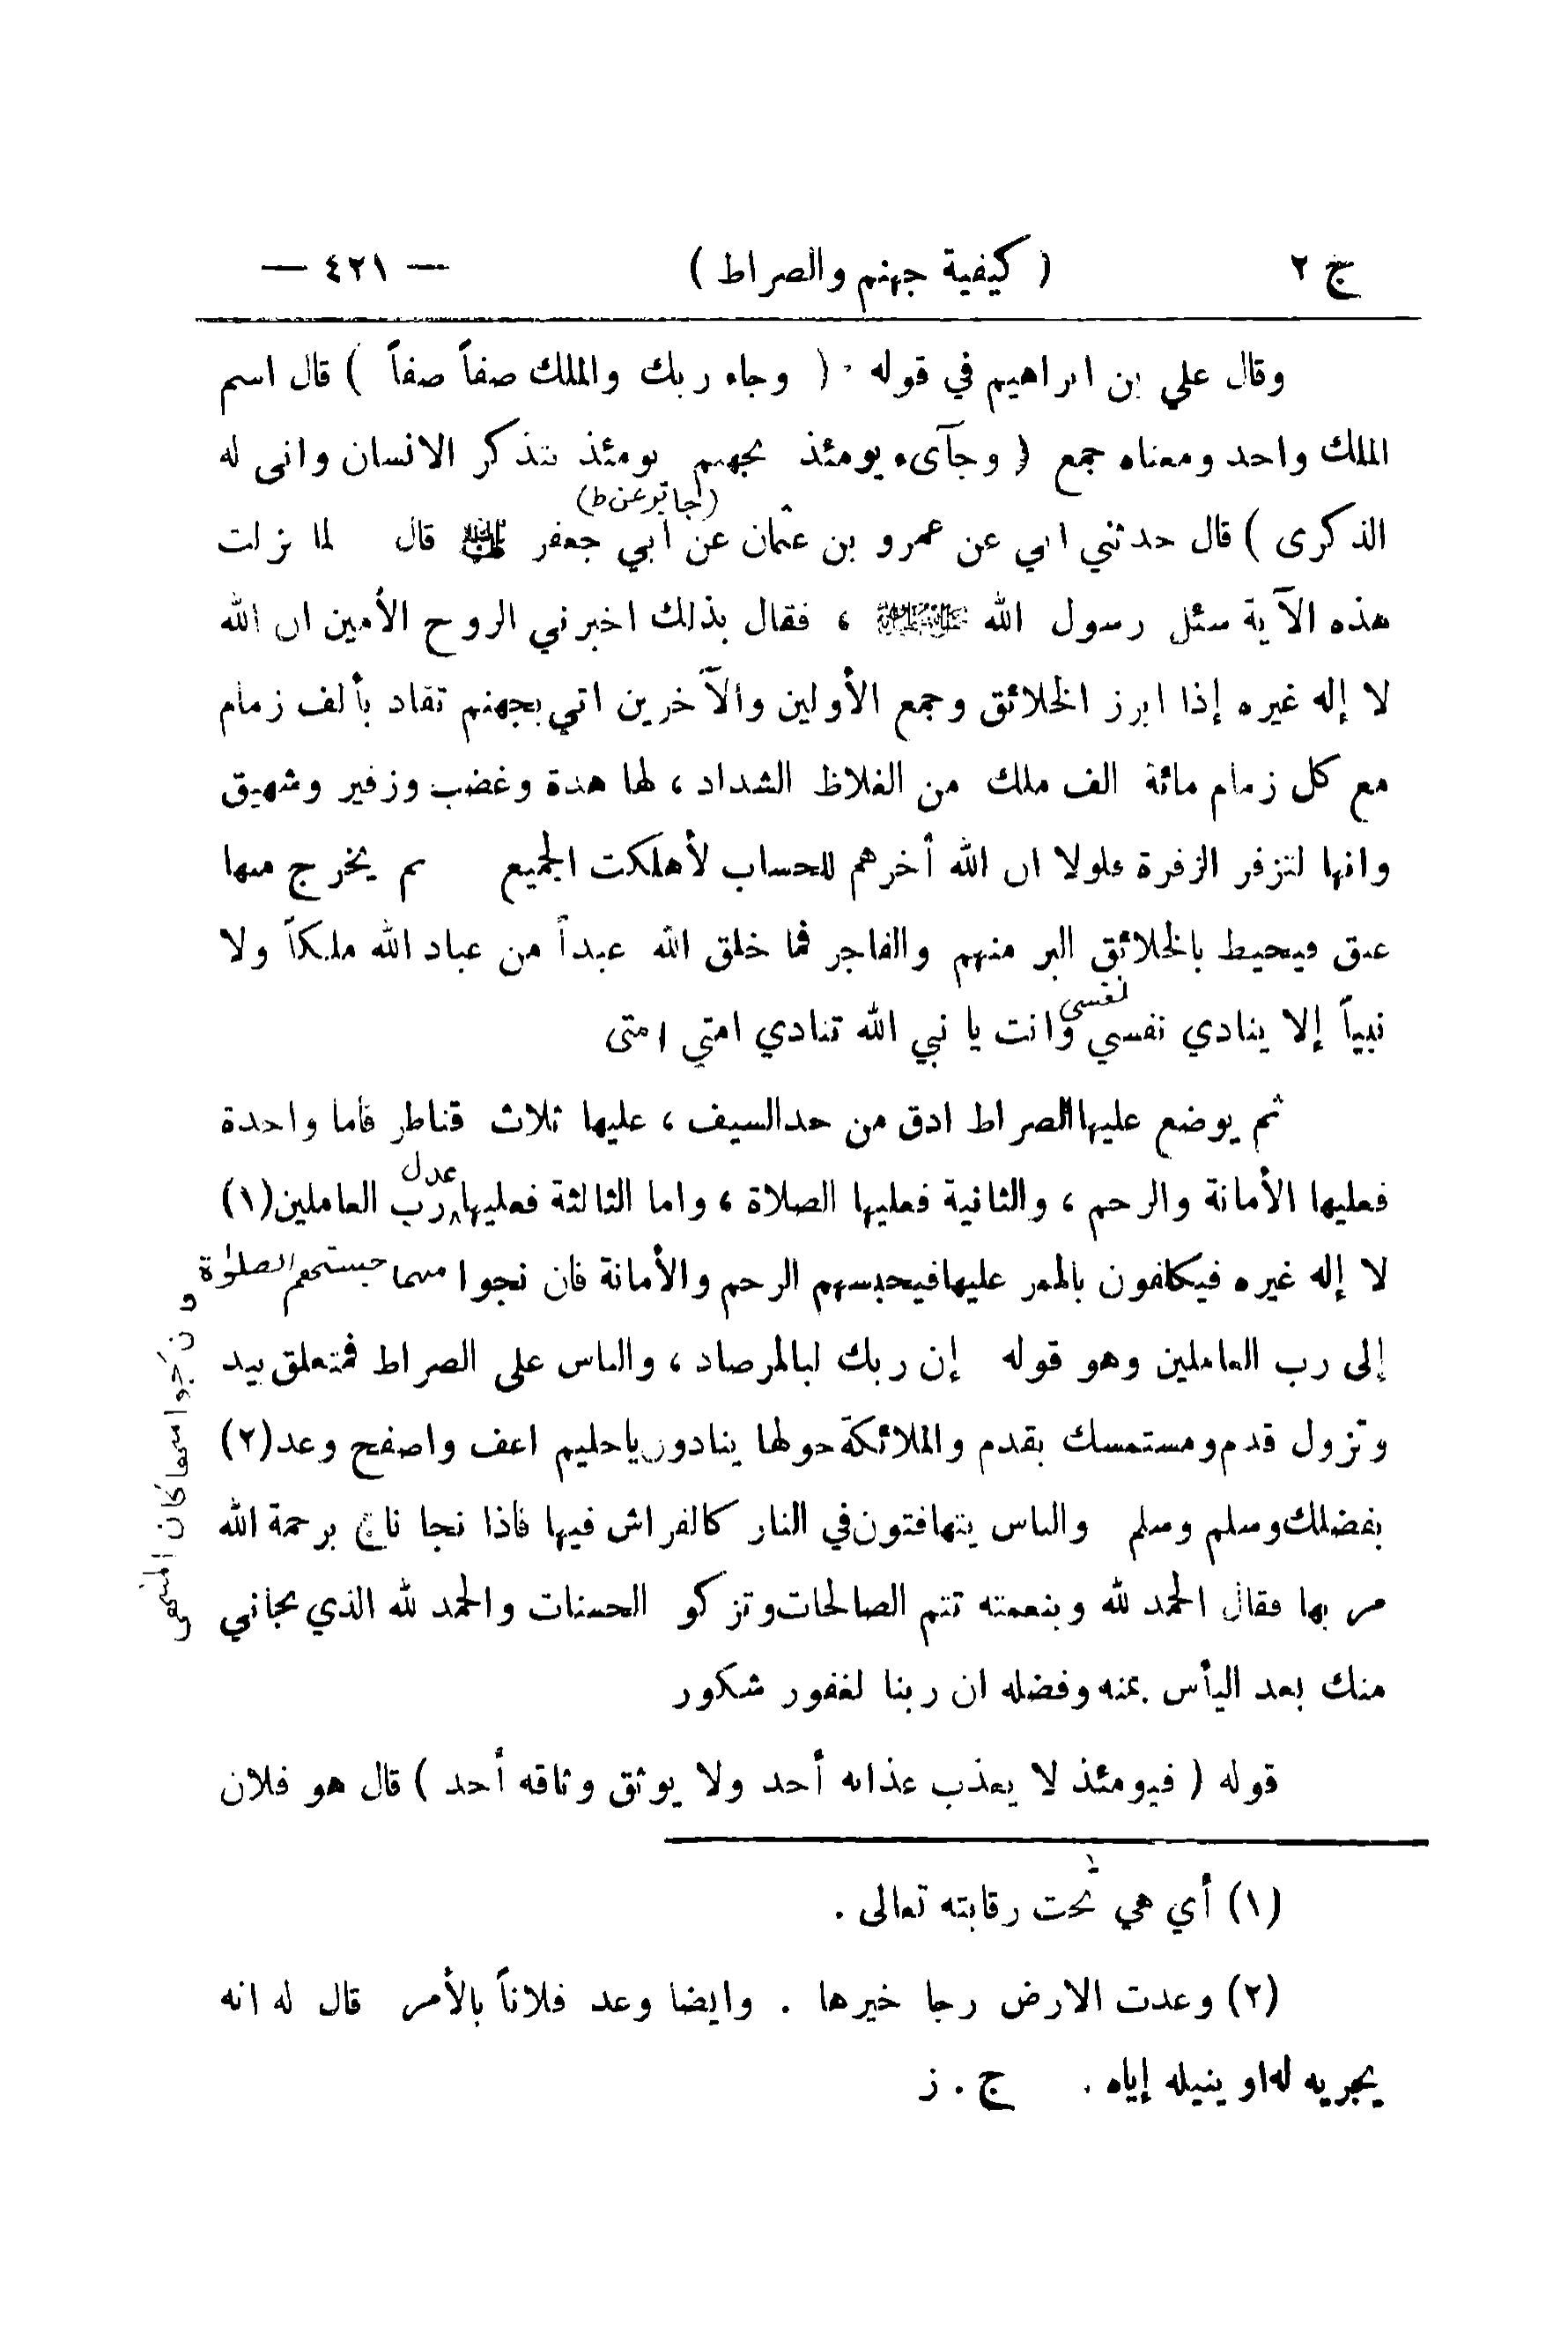 ج ٢ ( كيفية جهنم والصراط ) — ٤٢١ —
وقال علي بن ابراهيم في قوله : ( وجاء ربك والملك صفاً صفاً ) قال اسم
الملك واحد ومعناه جمع ( وجآىء يومئذ بجهنم يومئذ يتذكر الانسان وانى له
(جابر عن ط)
الذكرى ) قال حدثني ابي عن عمرو بن عثمان عن أبي جعفر عليه السلام قال لما نزلت
هذه الآية سئل رسول الله صلى الله عليه وآله ، فقال بذلك اخبرني الروح الأمين ان الله
لا إله غيره إذا ابرز الخلائق وجمع الأولين والآخرين اتي بجهنم تقاد بألف زمام
مع كل زمام مائة الف ملك من الغلاظ الشداد ، لها هدة وغضب وزفير وشهيق
وانها لتزفر الزفرة فلولا ان الله أخرهم للحساب لأهلكت الجميع ثم يخرج منها
عنق فيحيط بالخلائق البر منهم والفاجر فما خلق الله عبداً من عباد الله ملكاً ولا
نفسي
نبياً إلا ينادي نفسي وانت يا نبي الله تنادي امتي امتى
ثم يوضع عليها الصراط ادق من حد السيف ، عليها ثلاث قناطر فأما واحدة
عدل
فعليها الأمانة والرحم ، والثانية فعليها الصلاة ، واما الثالثة فعليها رب العاملين (١)
لا إله غيره فيكلفون بالممر عليها فيحبسهم الرحم والأمانة فان نجوا منهما حبستهم الصلوٰة
و ن نجوا منها كان المنتهى
إلى رب العاملين وهو قوله إن ربك لبالمرصاد ، والناس على الصراط فمتعلق بيد
وتزول قدم ومستمسك بقدم والملائكة حولها ينادون يا حليم اعف واصفح وعد (٢)
بفضلك وسلم وسلم والناس يتهافتون في النار كالفراش فيها فأذا نجا ناج برحمة الله
مر بها فقال الحمد لله وبنعمته تتم الصالحات وتزكو الحسنات والحمد لله الذي نجاني
منك بعد اليأس بمنه وفضله ان ربنا لغفور شكور
قوله ( فيومئذ لا يعذب عذابه أحد ولا يوثق وثاقه أحد ) قال هو فلان
(١) أي هي تحت رقابته تعالى .
(٢) وعدت الارض رجا خيرها . وايضا وعد فلاناً بالأمر قال له انه
يجريه له او ينيله إياه . ج . ز